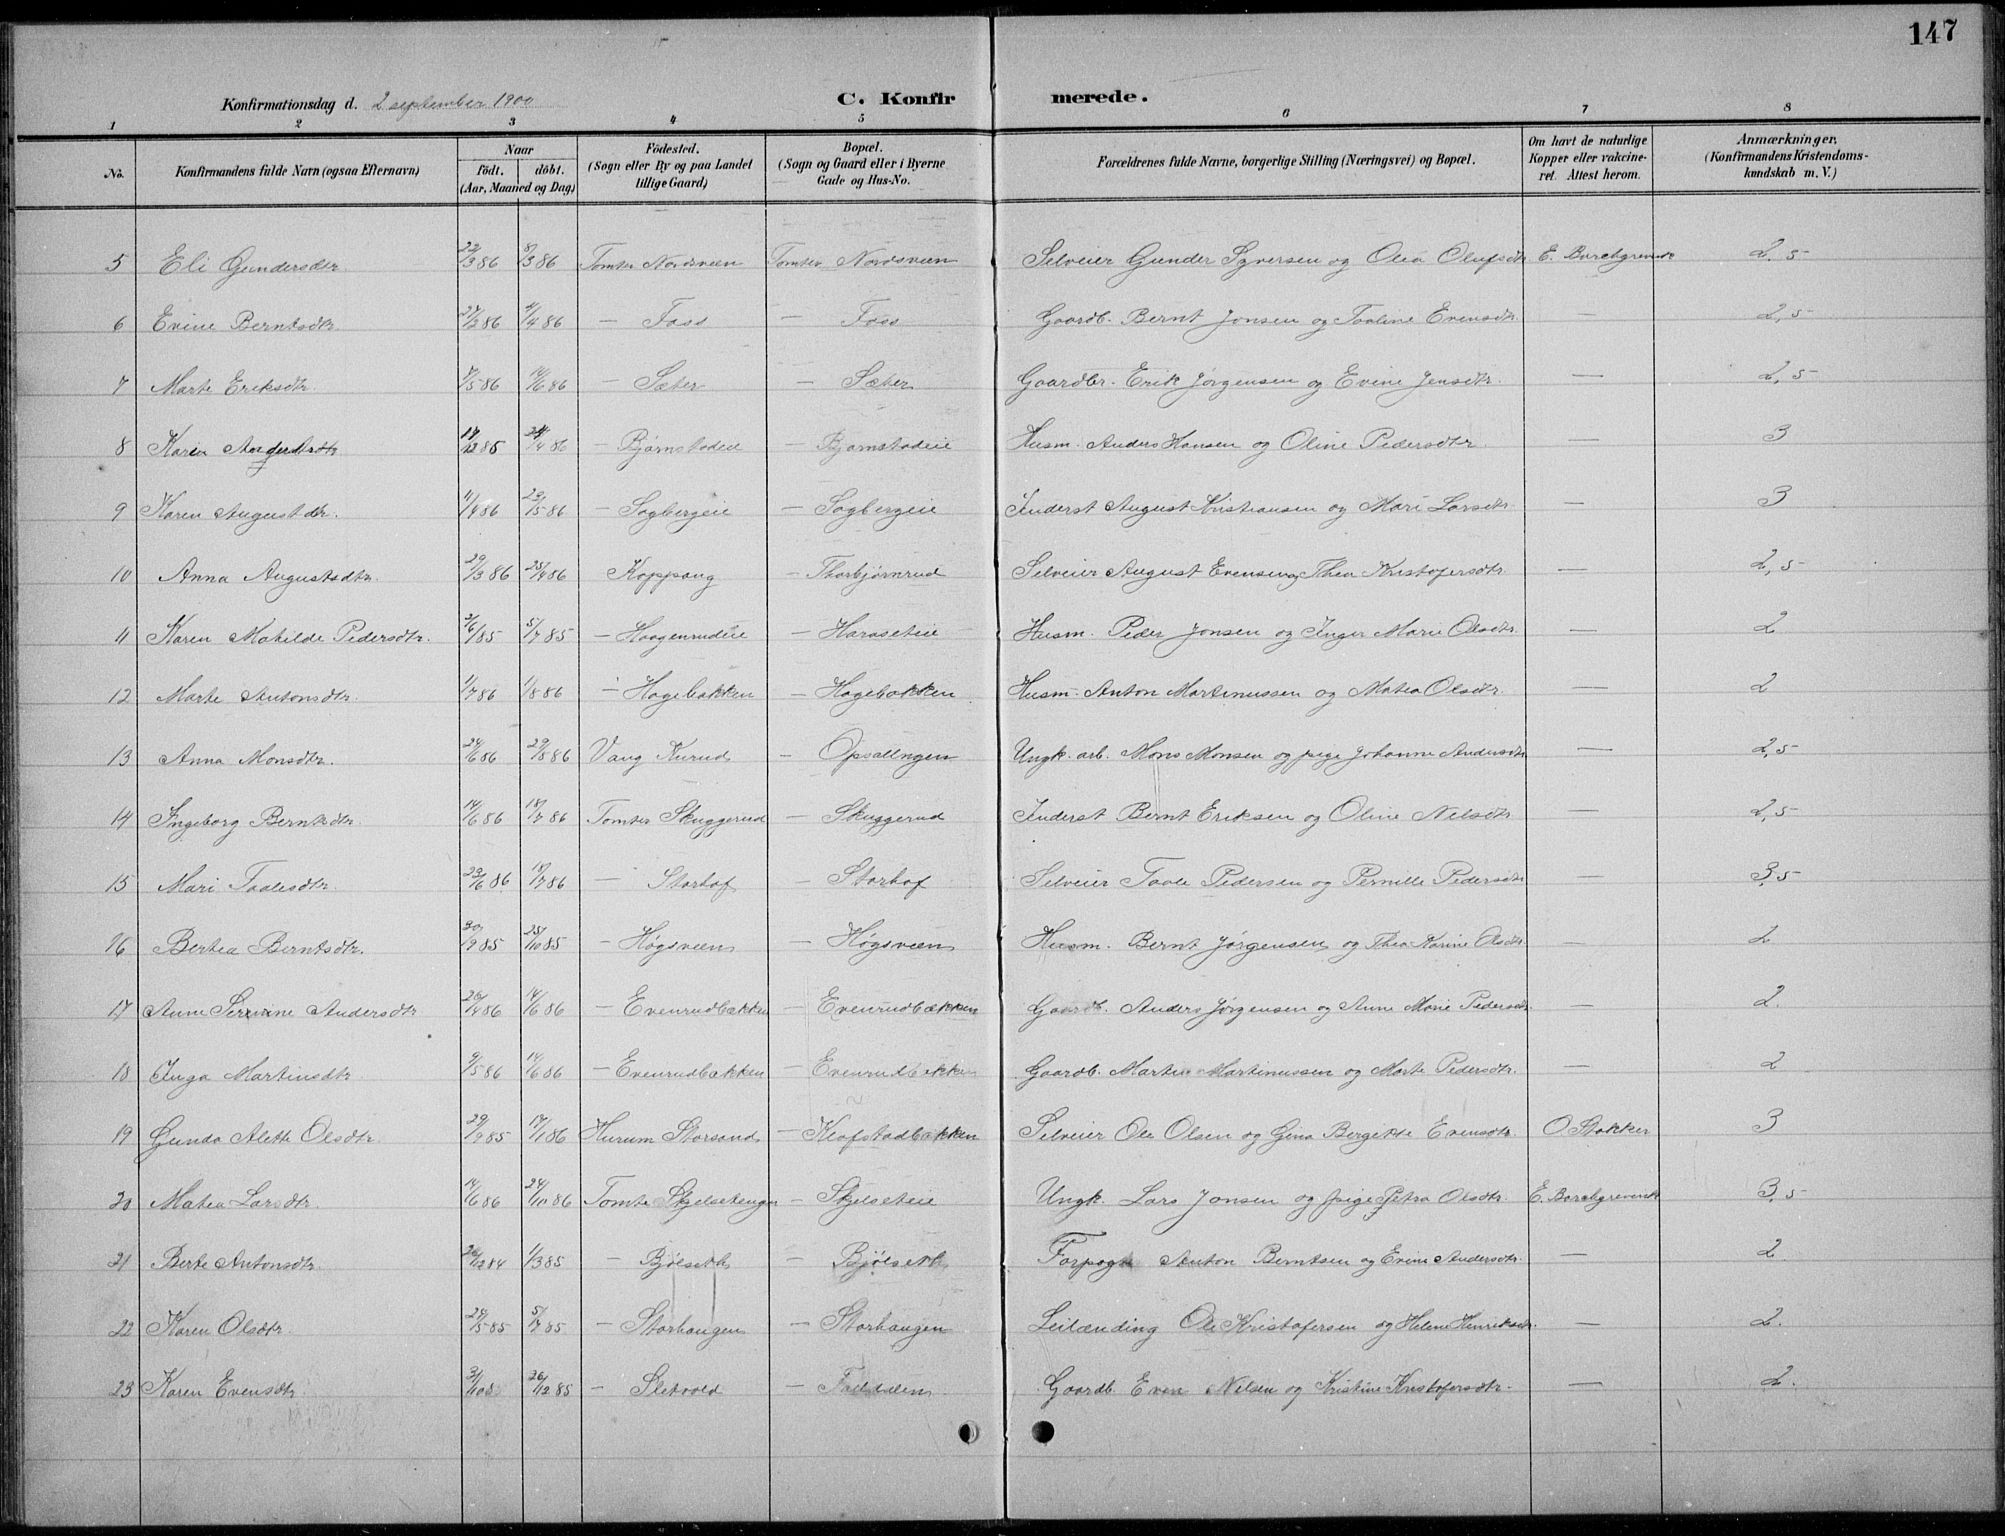 147
Konfirmationsdag d. 2 september 1900
C. Konfirmerede.
1 2 3 4 5 6 7 8
No. Konfirmandens fulde Navn (ogsaa Efternavn) Naar födt. döbt. (Aar, Maaned og Dag) Födested. (Sogn eller By og paa Landet tillige Gaard) Bopæl. (Sogn og Gaard eller i Byerne Gade og Hus-No. Forældrenes fulde Navne, borgerlige Stilling (Næringsvei) og Bopæl. Om havt de naturlige Kopper eller vakcineret. Attest herom. Anmærkninger. (Konfirmandens Kristendomskundskab m. V.)
5 Eli Gundersdtr. 22/3 86 8/3 86 Tomter Nordsveen Tomter Nordsveen Selveier Gunder Syversen og Olea Olufsdtr E. Borchgrevink 2,5
6 Evine Berntsdtr. 27/2 86 4/4 86 — Foss — Foss Gaardb. Bernt Jonsen og Taaline Evensdtr. — 2,5
7 Marte Eriksdtr. 7/5 86 14/6 86 — Sæter — Sæter Gaardbr. Erik Jørgensen og Evine Jensdtr. — 2,5
8 Karen Andersdtr 17/12 85 24/4 86 — Bjørnstadeie — Bjørnstadeie Husm. Anders Hansen og Oline Pedersdtr. — 3
9 Karen Augustdtr. 11/4 86 23/5 86 — Sogbergeie — Sogbergeie Inderst August Kristiansen og Mari Larsdtr. — 3
10 Anna Augustsdtr. 29/3 86 25/4 86 Koppang — Thorbjørnrud Selveier August Evensen og Thea Kristofersdtr. — 2,5
11 Karen Mathilde Pedersdtr. 3/6 85 5/7 85 — Haagenrudeie — Haraseteie Husm. Peder Jonsen og Inger Marie Olsdtr. — 2
12 Marte Antonsdtr. 1/7 86 1/8 86 — Hagebakken — Hagebakken Husm. Anton Martinussen og Matea Olsdtr. — 2
13 Anna Monsdtr. 24/6 86 29/8 86 Vang Kurud — Opsalengen Ungk. arb. Mons Monsen og pige Johanne Andersdtr — 2,5
14 Ingeborg Berntsdtr. 14/6 86 18/7 86 Tomter Skuggerud — Skuggerud Inderst Bernt Eriksen og Oline Nilsdtr — 2,5
15 Mari Taalesdtr. 23/6 86 18/7 86 — Storhof — Storhof Selveier Taale Pedersen og Pernille Pedersdtr — 3,5
16 Bertea Berntsdtr. 30/9 85 25/10 85 — Høgsveen — Høgsveen Husm. Bernt Jørgensen og Thea Karine Olsdtr. — 2
17 Anne Serine Andersdtr 26/4 86 14/6 86 — Evenrudbækken — Evenrudbækken Gaardb. Anders Jørgensen og Anne Marie Pedersdtr — 2.
18 Inga Martinsdtr. 9/5 86 14/6 86 — Evenrudbækken — Evenrudbækken Gaardb. Martin Martinussen og Marte Pedersdtr. — 2
19 Gunda Alette Olsdtr. 29/9 85 17/1 86 Hurum Storsand — Klofstadbakken Selveier Ole Olsen og Gina Bergitte Evensdtr. O Stokker 3
20 Matea Larsdtr. 14/6 86 24/10 86 Tomter Skjelsetengen — Skjelseteie Ungk. Lars Jonsen og pige Petra Olsdtr. E. Borchgrevink 3,5
21 Berte Antonsdtr. 26/12 84 1/3 85 — Bjølseth — Bjølseth Forpagter Anton Berntsen og Evine Andersdtr. — 2
22 Karen Olsdtr. 24/5 85 5/7 85 — Storhaugen — Storhaugen Leilænding Ole Kristofersen og Helene Henriksdtr. — 2.
23 Karen Evensdtr. 31/10 85 26/12 85 — Sletvold — Gaardb. Even Nilsen og Kristine Kristofersdtr. — 2.